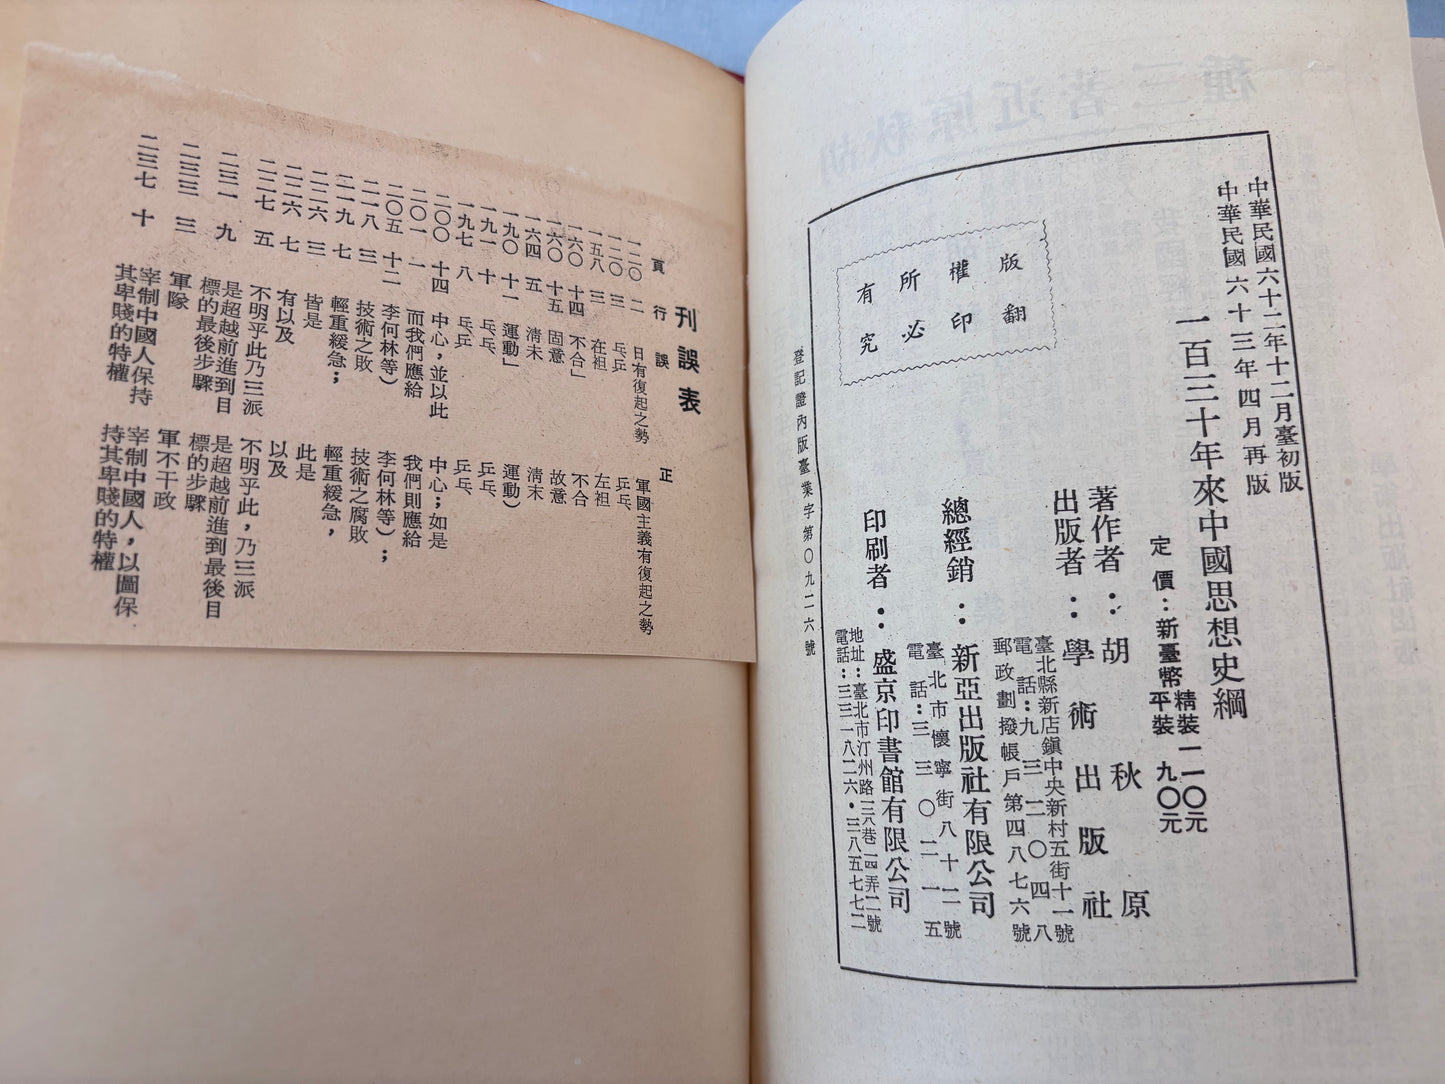 中華民國六十二年十二月臺初版
中華民國六十三年四月再版
一百三十年來中國思想史綱
定價：新臺幣 精裝一一〇元
平裝九〇元
著作者：胡秋原
出版者：學術出版社
臺北縣新店鎮中央新村五街十一號
電話：九三二〇四八
郵政劃撥帳戶第四八七六號
總經銷：新亞出版社有限公司
臺北市懷寧街八十二號
電話：三三〇二一五
印刷者：盛京印書館有限公司
地址：臺北市汀州路三八巷一四弄二號
電話：三三一八二六・三八五七七二
版權所有
翻印必究
登記證內版臺業字第〇九二六號
刊誤表
頁 行 誤 正
一二〇 二 日有復起之勢 軍國主義有復起之勢
一二〇 三 乓乒 乒乓、
一五八 三 在祖 左袒
一六〇 十四 不合」 不合
一六〇 十五 固意 故意
一六四 五 清未 清末
一九〇 十一 運動」 運動）
一九一 十 乓乒、 乒乓、
一九七 八 乓乒 乒乓、
二〇〇 十四 中心，並以此 中心；如是
二〇一 一 而我們應給 我們則應給
二〇五 十二 李何林等） 李何林等）；
二一八 三 技術之敗 技術之腐敗
二一九 七 輕重緩急； 輕重緩急，
二二六 三 皆是 此是
二二六 七 有以及 以及
二二七 五 不明乎此乃三派 不明乎此，乃三派
二三一 九 是超越前進到目標的最後步驟 是超越前進到最後目標的步驟
二三三 三 軍隊 軍不干政
二三七 十 宰制中國人保持其卑賤的特權 宰制中國人，以圖保持其卑賤的特權